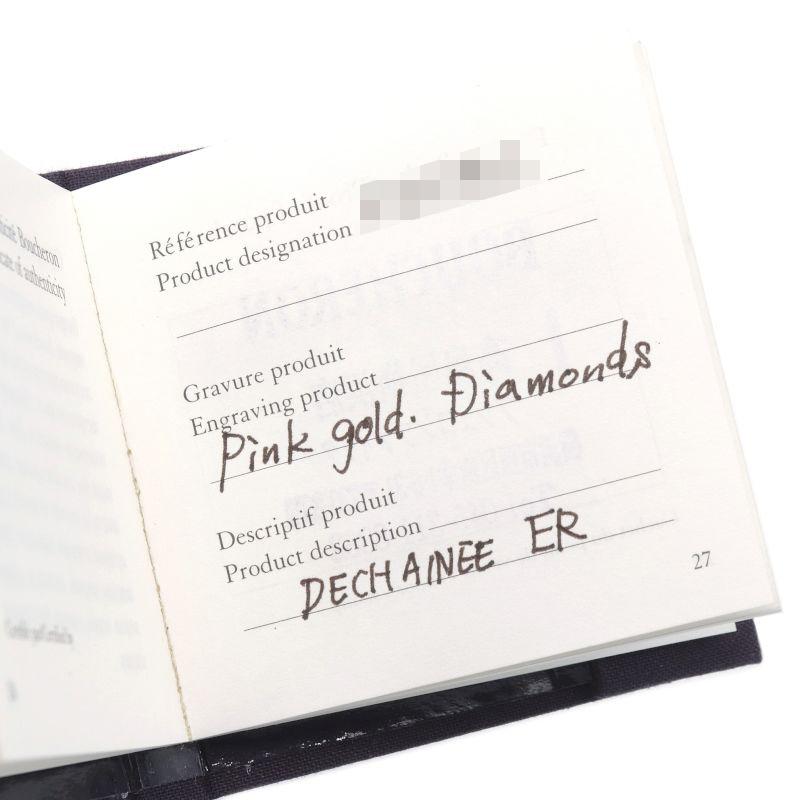 Boucheron
of authenticity
Référence produit
Product designation
Gravure produit
Engraving product
Pink gold. Diamonds
Descriptif produit
Product description
DECHAINEE ER
27